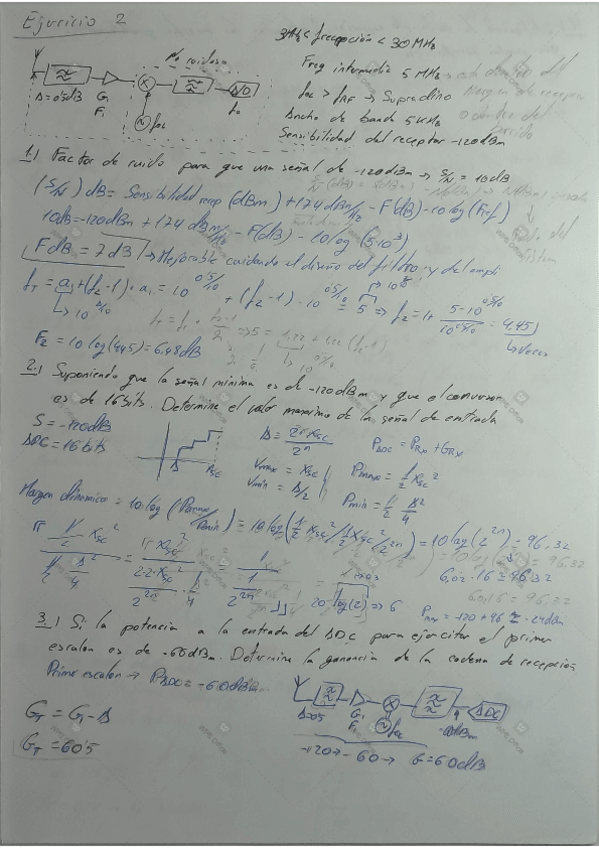 Ejercicio 2
3MHz < frecepción < 30MHz
No ruidoso
Freq intermedia 5MHz
A=0'5dB G1 F1 fOL ADC
fOL > fRF → Supradino
Ancho de banda 5KHz
Sensibilidad del receptor -120dBm
1.) Factor de ruido para que una señal de -120dBm → S/N = 10dB
(S/N)dB = Sensibilidad recep (dBm) + 174 dBm/Hz - F(dB) - 10log(FIF)
10dB = -120dBm + 174 dBm/Hz - F(dB) - 10log(5·10³)
FdB = 7dB → Mejorable cuidando el diseño del filtro y del ampli
fT = a1 + (f2-1)·a1 = 10^0'5/10 + (f2-1)·10^0'5/10 = 5 ⇒ f2 = 1+ 5-10^0'5/10 / 10^0'5/10 = 4,45
↳ 10^0'5/10 ↳ Veces
F2 = 10log(4'45) = 6,48dB
2.) Suponiendo que la señal mínima es de -120dBm y que el conversor
es de 16bits. Determine el valor maximo de la señal de entrada
S = -120dB
ADC = 16bits
Δ = 2·Xsc / 2^n
PADC = PRx + GRx
Vmax = Xsc
Vmin = Δ/2
Pmax = 1/2 Xsc²
Pmin = 1/2 Δ²/4
Margen dinamico = 10log(Pmax/Pmin) = 10log(1/2 Xsc² / 1/2 Xsc²/2^2n) = 10log(2^2n) = 96,32
6,02·16 = 96,32
20·log(2) ⇒ 6
Pmax = -120 + 96 = -24dBm
3.) Si la potencia a la entrada del ADC para ejercitar el primer
escalon es de -60dBm. Determine la ganancia de la cadena de recepción
Primer escalon → PADC = -60dBm
A=0'5 G1 F1 fOL ADC
GT = G1 - A
GT = 60'5
-120 → -60 → G = 60dB